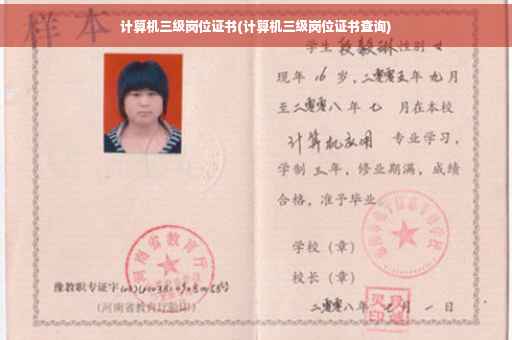 计算机三级岗位证书(计算机三级岗位证书查询)
样本
学生 段毅琳 性别 女
现年 16 岁，二零零五年 九 月
至二零零八年 七 月在本校
计算机应用 专业学习，
学制 三 年，修业期满，成绩
合格，准予毕业。
学校（章）
校长（章）
二零零八年 七 月 一 日
河南省教育厅
豫教职专证字
(河南省教育厅验印)